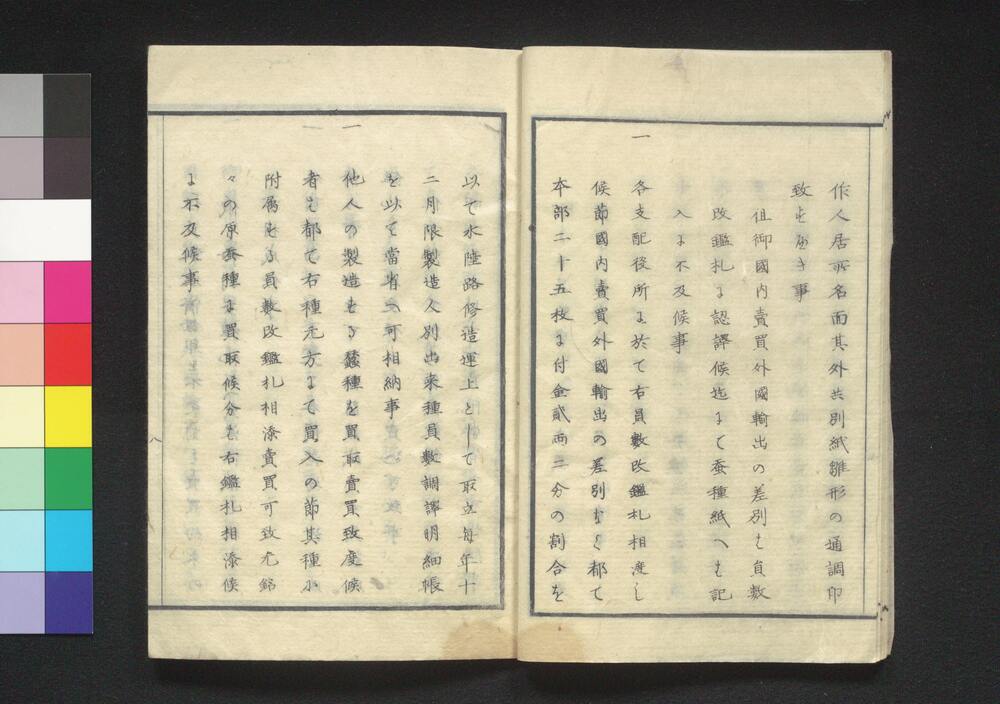 作人居所名面其外共別紙雛形の通調印
致すべき事
但御國内賣買外國輸出の差別は員數
改鑑札に認譯候迄にて蚕種紙へは記
入に不及候事
一
各支配役所に於て右員數改鑑札相渡し
候節國内賣買外國輸出の差別なく都て
本部二十五枚に付金貳両二分の割合を
以て水陸路修造運上として取立毎年十
二月限製造人別出来種員數調譯明細帳
を以て當省へ可相納事
一
他人の製造せる蠶種を買取賣買致度候
者は都て右種元方にて買入の節其種に
附属せる員數改鑑札相添賣買可致尤銘
々の原蚕種に買取候分も右鑑札相添候
に不及候事
八